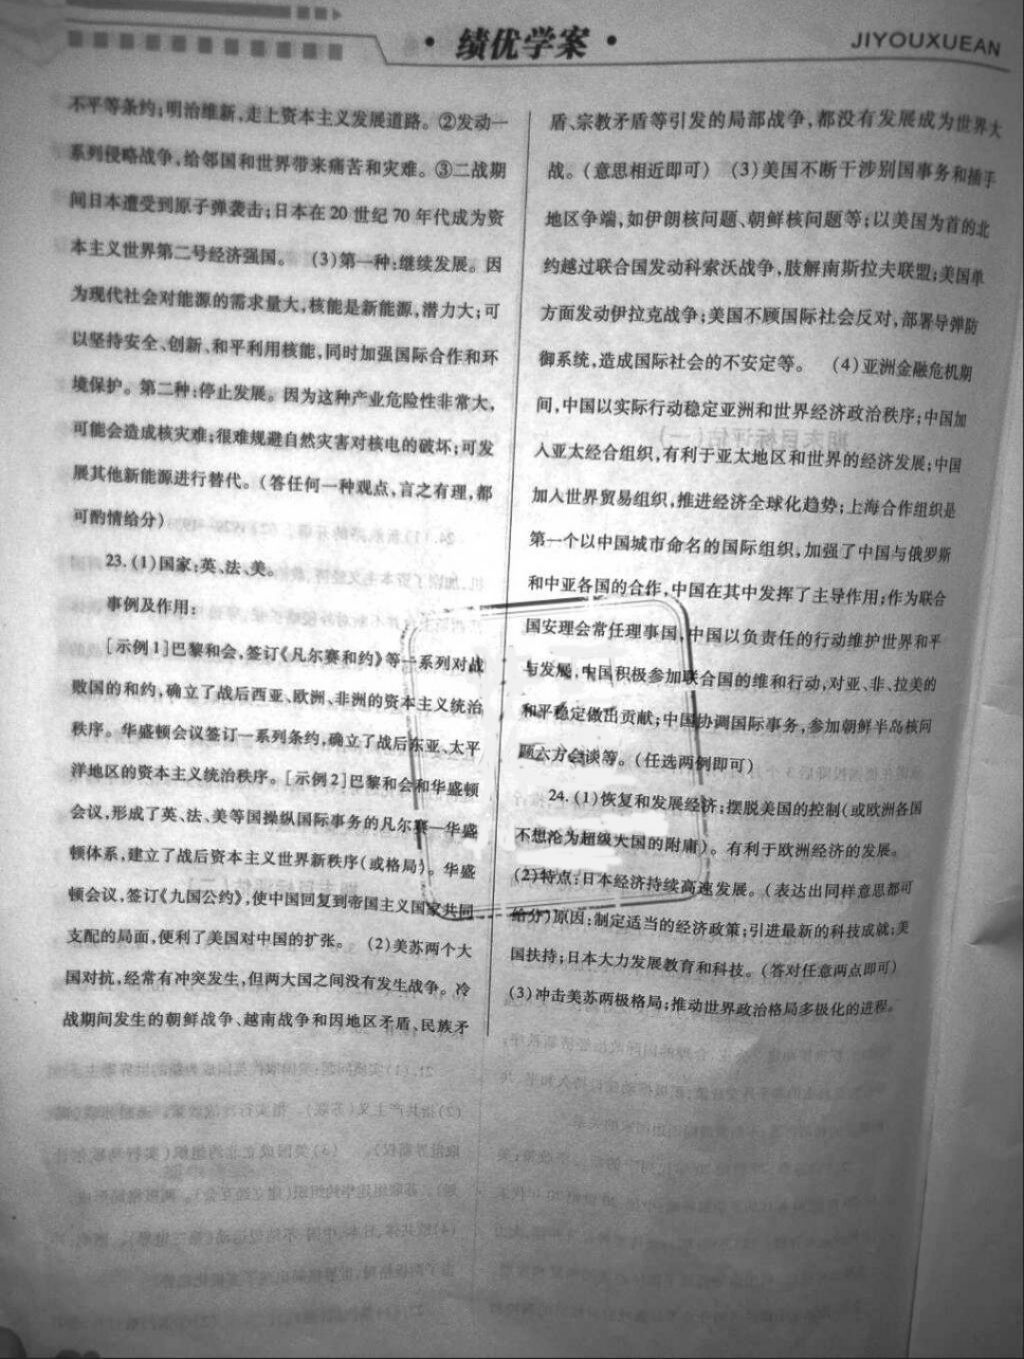 · 绩优学案 ·
JIYOUXUEAN
不平等条约;明治维新,走上资本主义发展道路。②发动一
系列侵略战争,给邻国和世界带来痛苦和灾难。③二战期
间日本遭受到原子弹袭击;日本在20世纪70年代成为资
本主义世界第二号经济强国。 (3)第一种:继续发展。因
为现代社会对能源的需求量大,核能是新能源,潜力大;可
以坚持安全、创新、和平利用核能,同时加强国际合作和环
境保护。第二种:停止发展。因为这种产业危险性非常大,
可能会造成核灾难;很难规避自然灾害对核电的破坏;可发
展其他新能源进行替代。(答任何一种观点,言之有理,都
可酌情给分)
23.(1)国家:英、法、美。
事例及作用:
[示例1]巴黎和会,签订《凡尔赛和约》等一系列对战
败国的和约,确立了战后西亚、欧洲、非洲的资本主义统治
秩序。华盛顿会议签订一系列条约,确立了战后东亚、太平
洋地区的资本主义统治秩序。[示例2]巴黎和会和华盛顿
会议,形成了英、法、美等国操纵国际事务的凡尔赛—华盛
顿体系,建立了战后资本主义世界新秩序(或格局)。华盛
顿会议,签订《九国公约》,使中国回复到帝国主义国家共同
支配的局面,便利了美国对中国的扩张。 (2)美苏两个大
国对抗,经常有冲突发生,但两大国之间没有发生战争。冷
战期间发生的朝鲜战争、越南战争和因地区矛盾、民族矛
盾、宗教矛盾等引发的局部战争,都没有发展成为世界大
战。(意思相近即可) (3)美国不断干涉别国事务和插手
地区争端,如伊朗核问题、朝鲜核问题等;以美国为首的北
约越过联合国发动科索沃战争,肢解南斯拉夫联盟;美国单
方面发动伊拉克战争;美国不顾国际社会反对,部署导弹防
御系统,造成国际社会的不安定等。 (4)亚洲金融危机期
间,中国以实际行动稳定亚洲和世界经济政治秩序;中国加
入亚太经合组织,有利于亚太地区和世界的经济发展;中国
加入世界贸易组织,推进经济全球化趋势;上海合作组织是
第一个以中国城市命名的国际组织,加强了中国与俄罗斯
和中亚各国的合作,中国在其中发挥了主导作用;作为联合
国安理会常任理事国,中国以负责任的行动维护世界和平
与发展,中国积极参加联合国的维和行动,对亚、非、拉美的
和平稳定做出贡献;中国协调国际事务,参加朝鲜半岛核问
题六方会谈等。(任选两例即可)
24.(1)恢复和发展经济;摆脱美国的控制(或欧洲各国
不想沦为超级大国的附庸)。有利于欧洲经济的发展。
(2)特点:日本经济持续高速发展。(表达出同样意思都可
给分)原因:制定适当的经济政策;引进最新的科技成就;美
国扶持;日本大力发展教育和科技。(答对任意两点即可)
(3)冲击美苏两极格局;推动世界政治格局多极化的进程。